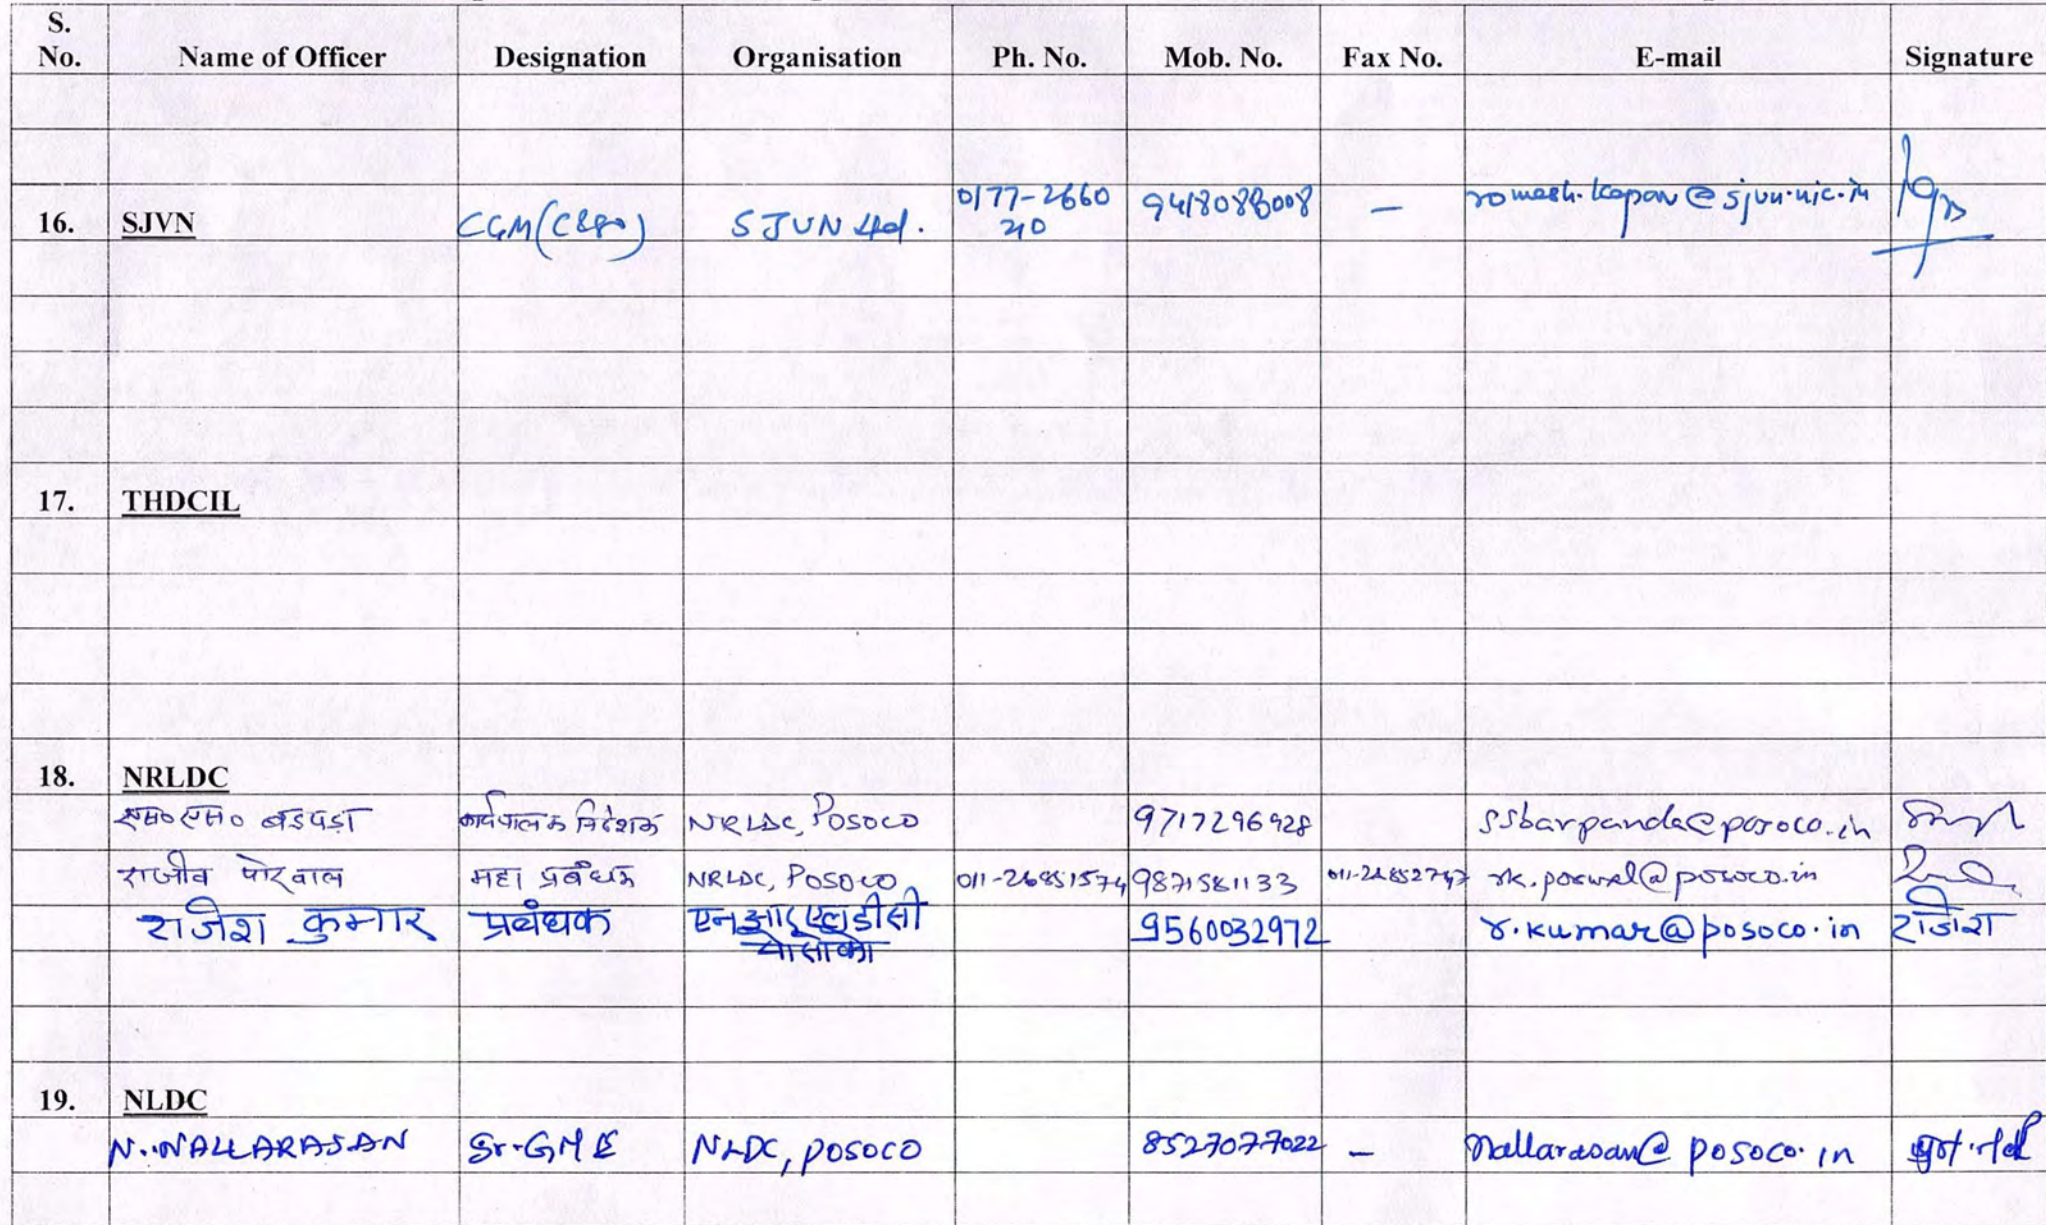 S.
No. Name of Officer Designation Organisation Ph. No. Mob. No. Fax No. E-mail Signature
0177-2660
16. SJVN CGM(C&SO) SJVN Ltd. 9418088008 — romesh.kapoor@sjvn.nic.in
210
17. THDCIL
18. NRLDC
एस० एस० बडपंडा कार्यपालक निदेशक NRLDC, POSOCO 9717296928 ssbarpanda@posoco.in
राजीव पोरवाल महा प्रबंधक NRLDC, POSOCO 011-26851574 9871581133 011-26852747 rk.porwal@posoco.in
राजेश कुमार प्रबंधक एनआरएलडीसी 9560032972 r.kumar@posoco.in राजेश
पोसोको
19. NLDC
N. NALLARASAN Sr. GM NLDC, POSOCO 8527077022 — nallarasan@posoco.in